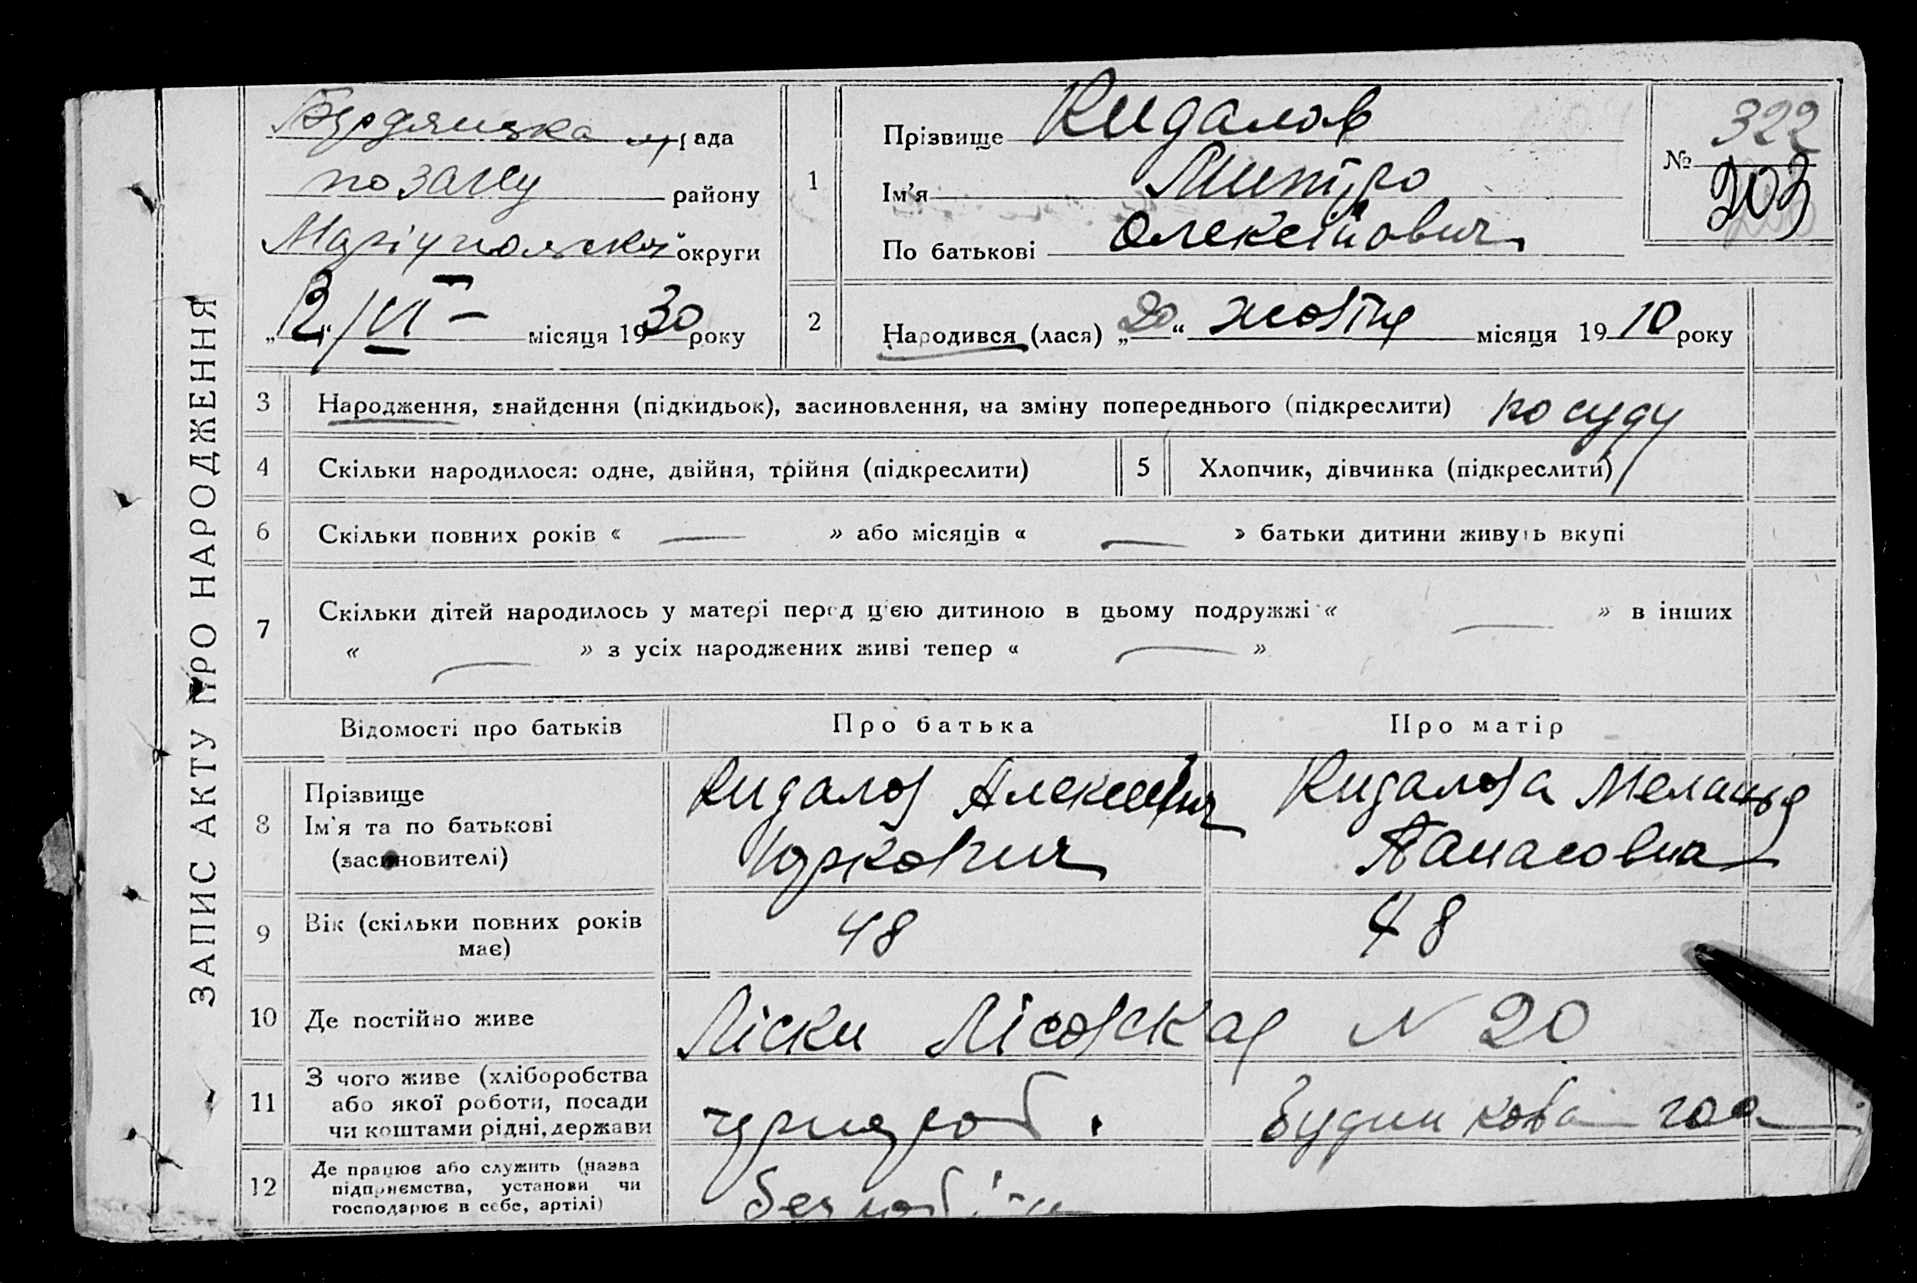 ЗАПИС АКТУ ПРО НАРОДЖЕННЯ
Бердянцка м/рада
по загсу району
Маріупольськ округи
„12/VI — місяця 1930 року
1 Прізвище Кидалов
Ім'я Митро
По батькові Олексійович
№ 322
203
2 Народився (лася) „20“ жовтня місяця 1910 року
3 Народження, знайдення (підкидьок), засиновлення, на зміну попереднього (підкреслити) по суду
4 Скільки народилося: одне, двійня, трійня (підкреслити) 5 Хлопчик, дівчинка (підкреслити)
6 Скільки повних років « — » або місяців « — » батьки дитини живуть вкупі
7 Скільки дітей народилось у матері перед цією дитиною в цьому подружжі « — » в інших
« — » з усіх народжених живі тепер « — »
Відомості про батьків Про батька Про матір
8 Прізвище
Ім'я та по батькові
(засиновителі)
Кидалов
Юркович
Кидалова Меланья
Панасовна
9 Вік (скільки повних років має) 48 48
10 Де постійно живе Ліски Лісовская N 20
11 З чого живе (хліборобства
або якої роботи, посади
чи коштами рідні, держави
чорнороб. Будинкова гос
12 Де працює або служить (назва
підприємства, установи чи
господарює в себе, артілі)